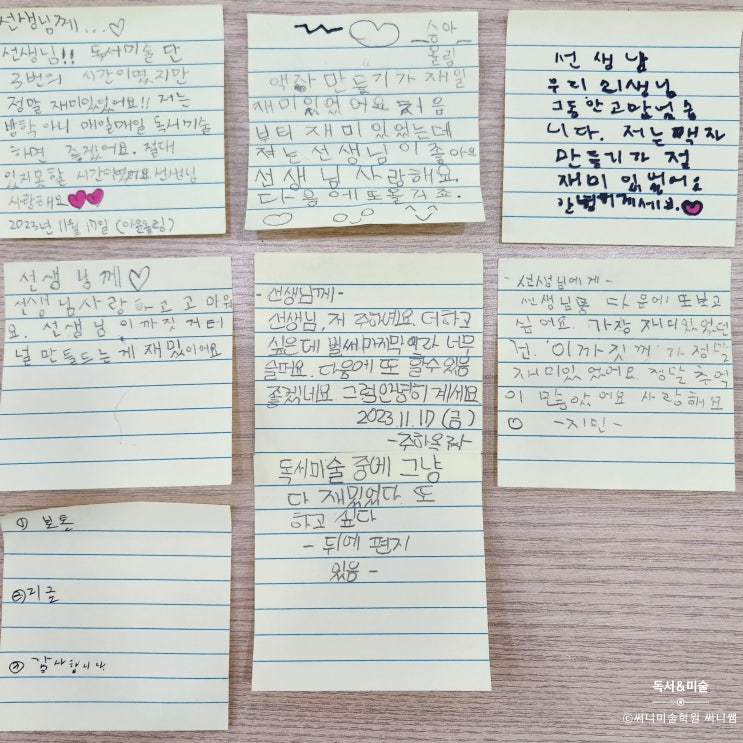 선생님께...♡
선생님!! 독서미술 단
3번의 시간이였지만
정말 재미있었어요!! 저는
방학 아니 매일매일 독서미술
하면 좋겠어요. 절대
잊지못할 시간이였어요 선생님
사랑해요
2023년 11월 17일 (아윤올림)
승아
올림
액자 만들기가 재일
재미있었어요 처음
부터 재미있었는데
저는 선생님이 좋아요
선생님 사랑해요.
다음에 또올거죠.
선생님
우리
그동안 고맙습
니다. 저는 액자
만들기가 젤
재미있었어요
안녕히게세요.
선생님께♡
선생님사랑하고 고마워
요. 선생님 이까짓 거터
널 만드는게 재밌이어요
-선생님께-
선생님, 저 주하예요 더하고
싶은데 벌써마지막이라 너무
슬퍼요. 다음에 또 할수있음
좋겠네요 그럼안녕히 게세요
2023.11.17 (금)
-주하올림-
독서미술 중에 그냥
다 재밌었다. 또
하고 싶다
- 뒤에 편지
있음 -
-선생님에게-
선생님 다음에 또보고
싶어요. 가장 재미있었던
건. '이까짓 꺼' 가 정말
재미있었어요. 정말 추억
이 많았어요 사랑해요
-지민-
① 보통
②리글
③ 감사합니다.
독서&미술
ⓒ써니미술학원 써니쌤